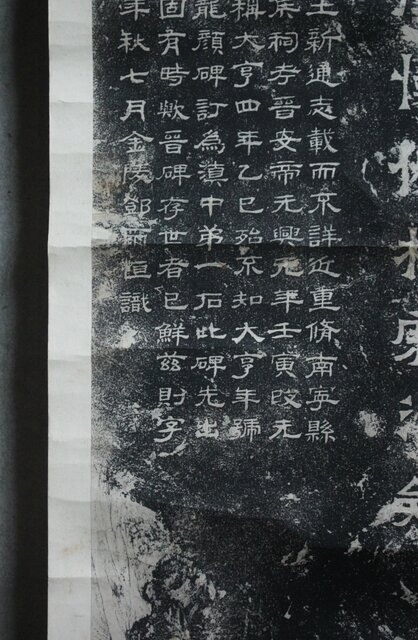 土新通志載而不詳近重脩南寧縣
侯祠考晉安帝元興元年壬寅改元
稱大亨四年乙巳殆不知大亨年號
龍顏碑訂為滇中第一石此碑先出
固有時歟晉碑存世者已鮮茲則字
年秋七月金陵鄧爾恒識